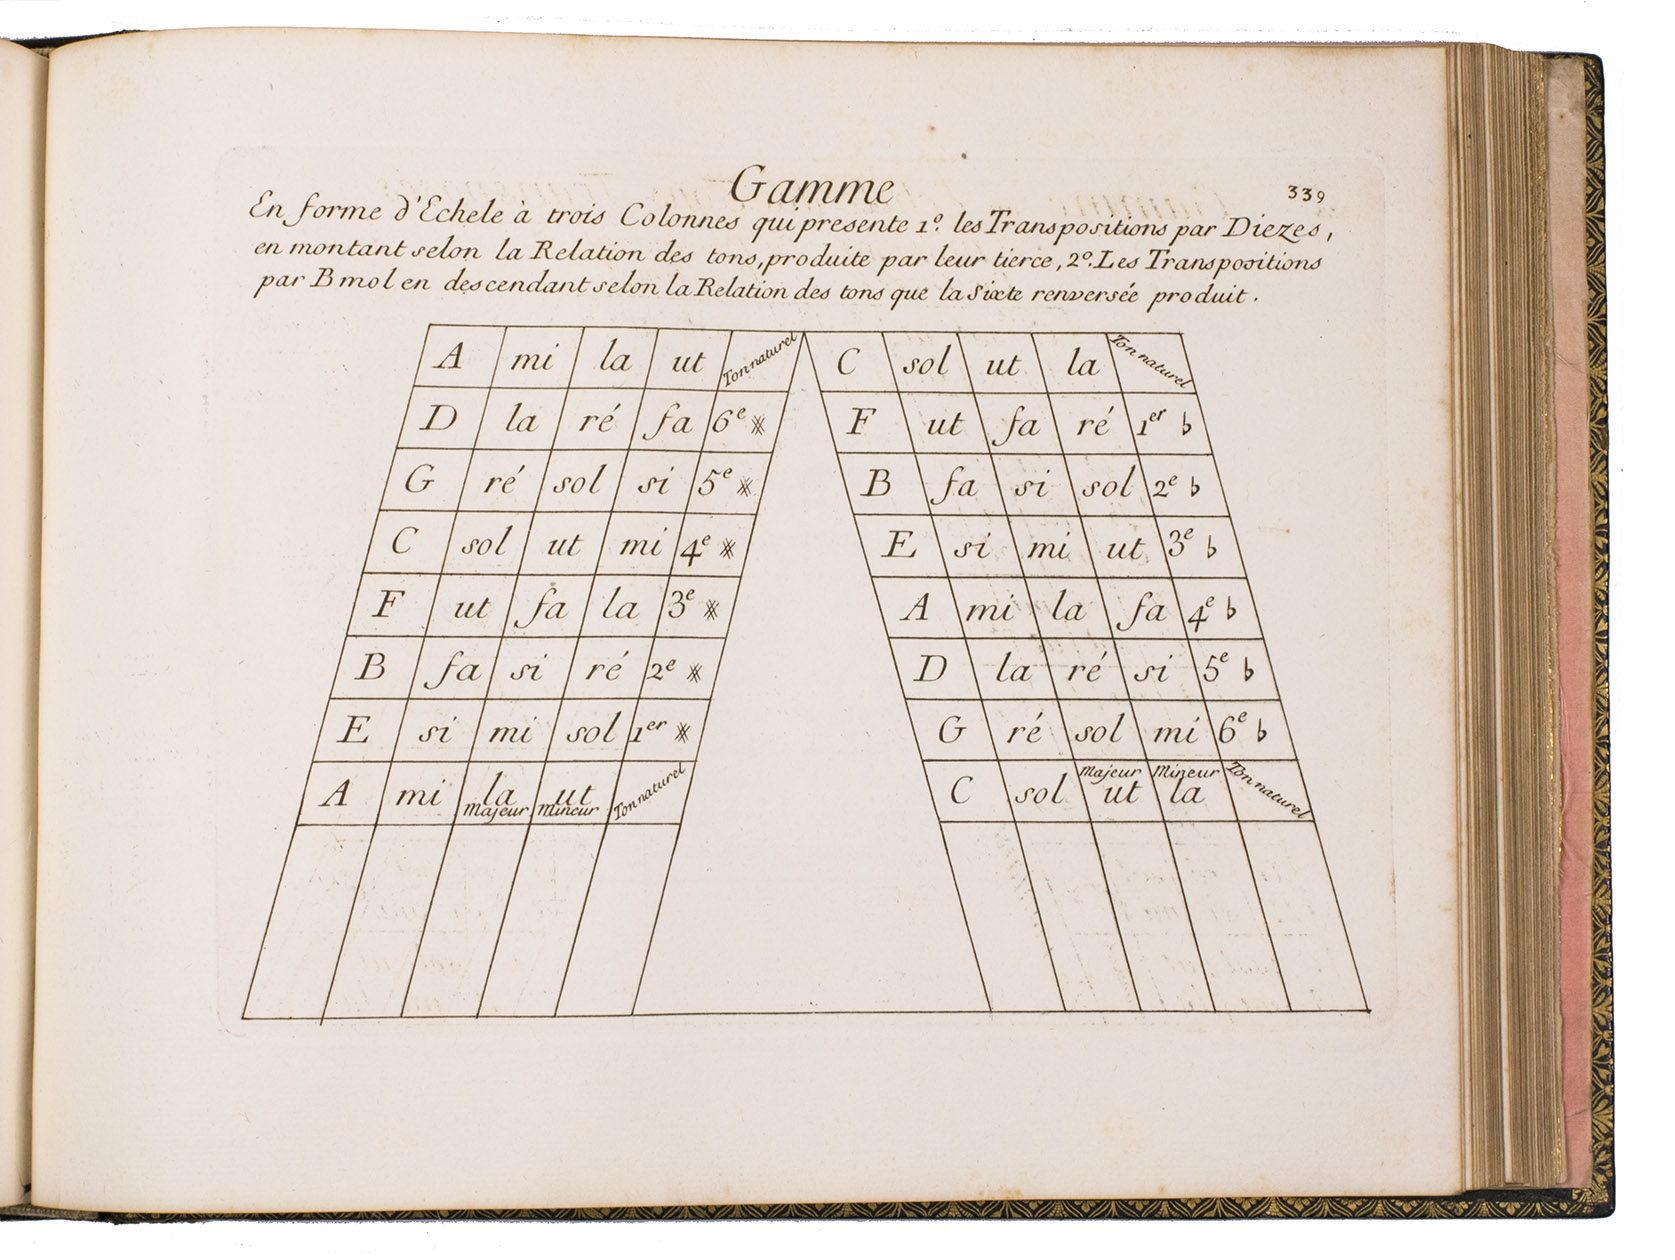 Gamme
339
En forme d'Echele à trois Colonnes qui presente 1.º les Transpositions par Diezes,
en montant selon la Relation des tons, produite par leur tierce, 2º. Les Transpositions
par B mol en descendant selon la Relation des tons que la Sixte renversée produit.
A mi la ut Ton naturel
D la ré fa 6e 𝄪
G ré sol si 5e 𝄪
C sol ut mi 4e 𝄪
F ut fa la 3e 𝄪
B fa si ré 2e 𝄪
E si mi sol 1er 𝄪
A mi la ut Ton naturel
majeur mineur
C sol ut la Ton naturel
F ut fa ré 1er ♭
B fa si sol 2e ♭
E si mi ut 3e ♭
A mi la fa 4e ♭
D la ré si 5e ♭
G ré sol mi 6e ♭
majeur mineur
C sol ut la Ton naturel